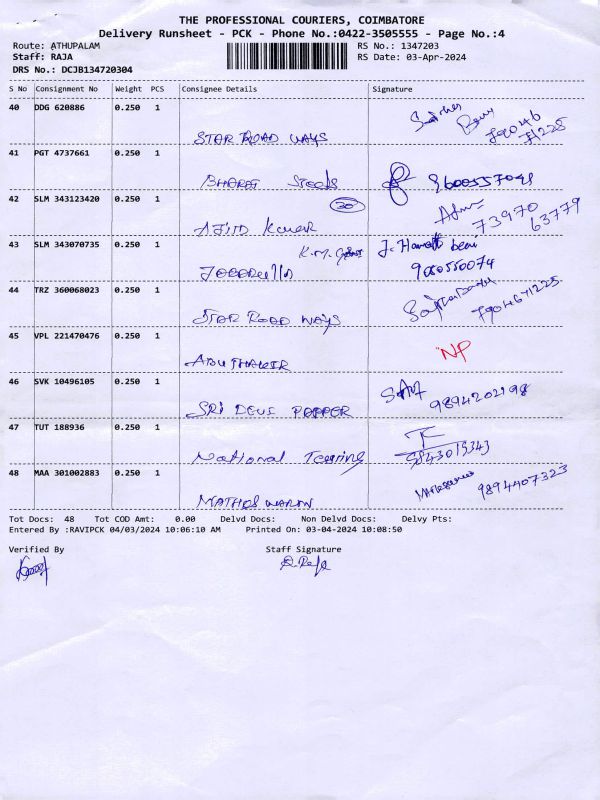 THE PROFESSIONAL COURIERS, COIMBATORE
Delivery Runsheet - PCK - Phone No.:0422-3505555 - Page No.:4
Route: ATHUPALAM RS No.: 1347203
Staff: RAJA RS Date: 03-Apr-2024
DRS No.: DCJB134720304
S No Consignment No Weight PCS Consignee Details Signature
40 DDG 620886 0.250 1
STAR ROAD WAYS 79046 71225
41 PGT 4737661 0.250 1
BHARAT Steels 8600557048
42 SLM 343123420 0.250 1 30
AJITD Kumar 73970 63779
43 SLM 343070735 0.250 1 K.M.
9080550074
44 TRZ 360068023 0.250 1
STAR ROAD WAYS 7904671225
45 VPL 221470476 0.250 1 "NP
ABUTHAKIR
46 SVK 10496105 0.250 1
SRI DEVI PEPPER 9894202198
47 TUT 188936 0.250 1
National 9843019343
48 MAA 301002883 0.250 1
9894407323
Tot Docs: 48 Tot COD Amt: 0.00 Delvd Docs: Non Delvd Docs: Delvy Pts:
Entered By :RAVIPCK 04/03/2024 10:06:10 AM Printed On: 03-04-2024 10:08:50
Verified By Staff Signature